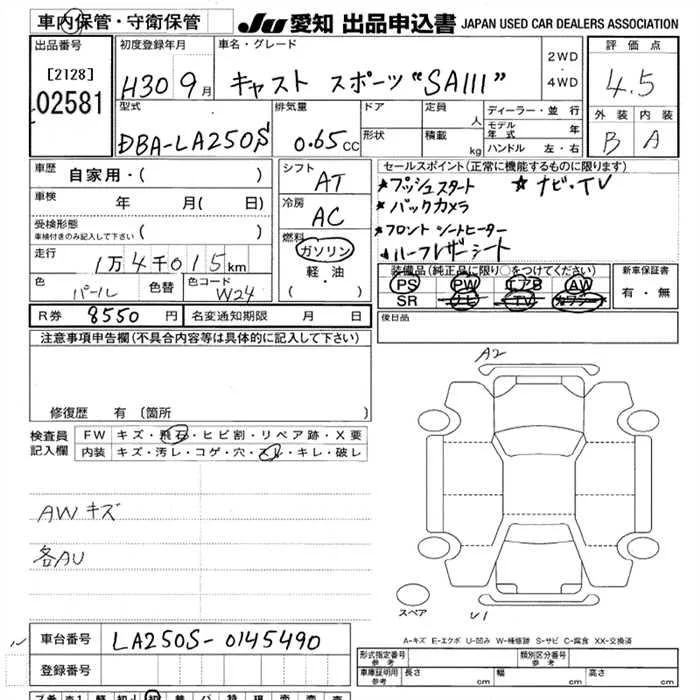 車内保管・守衛保管 JU 愛知 出品申込書 JAPAN USED CAR DEALERS ASSOCIATION
出品番号 初度登録年月 車名・グレード 2WD ・ 4WD 評価点
[2128] 02581 H30 9月 キャスト スポーツ "SAIII" 4.5
型式 排気量 ドア 定員 人 ディーラー・並行 外装 内装
DBA-LA250S 0.65cc 形状 積載 kg モデル年式 年 B A
ハンドル 左・右
車歴 自家用・( ) シフト AT セールスポイント(正常に機能するものに限ります)
★プッシュスタート ☆ナビ・TV
車検 年 月( 日) 冷房 AC ★バックカメラ
受検形態 車検付きのみ記入して下さい ( ) 燃料 ガソリン ★フロント シートヒーター
・軽・油 ・( ) ★ハーフレザーシート
走行 1万4千015km
装備品(純正品に限り○をつけてください) 新車保証書
色 パール 色替 色コード W24 PS PW エアB AW 有・無
SR ナビ TV カワシート
R券 8550円 名変通知期限 月 日 後日品
注意事項申告欄(不具合内容等は具体的に記入して下さい)
A2
修復歴 有 〔箇所 〕
検査員記入欄 FW キズ・飛石・ヒビ割・リペア跡・X要
内装 キズ・汚レ・コゲ・穴・スレ・キレ・破レ
AWキズ
各AU
スペア U1
A-キズ E-エクボ U-凹み W-補修跡 S-サビ C-腐食 XX-交換済
車台番号 LA250S-0145490
登録番号
形式指定番号 参考 類別区分番号 参考
車庫証明用 参考 長さ cm 幅 cm 高さ cm